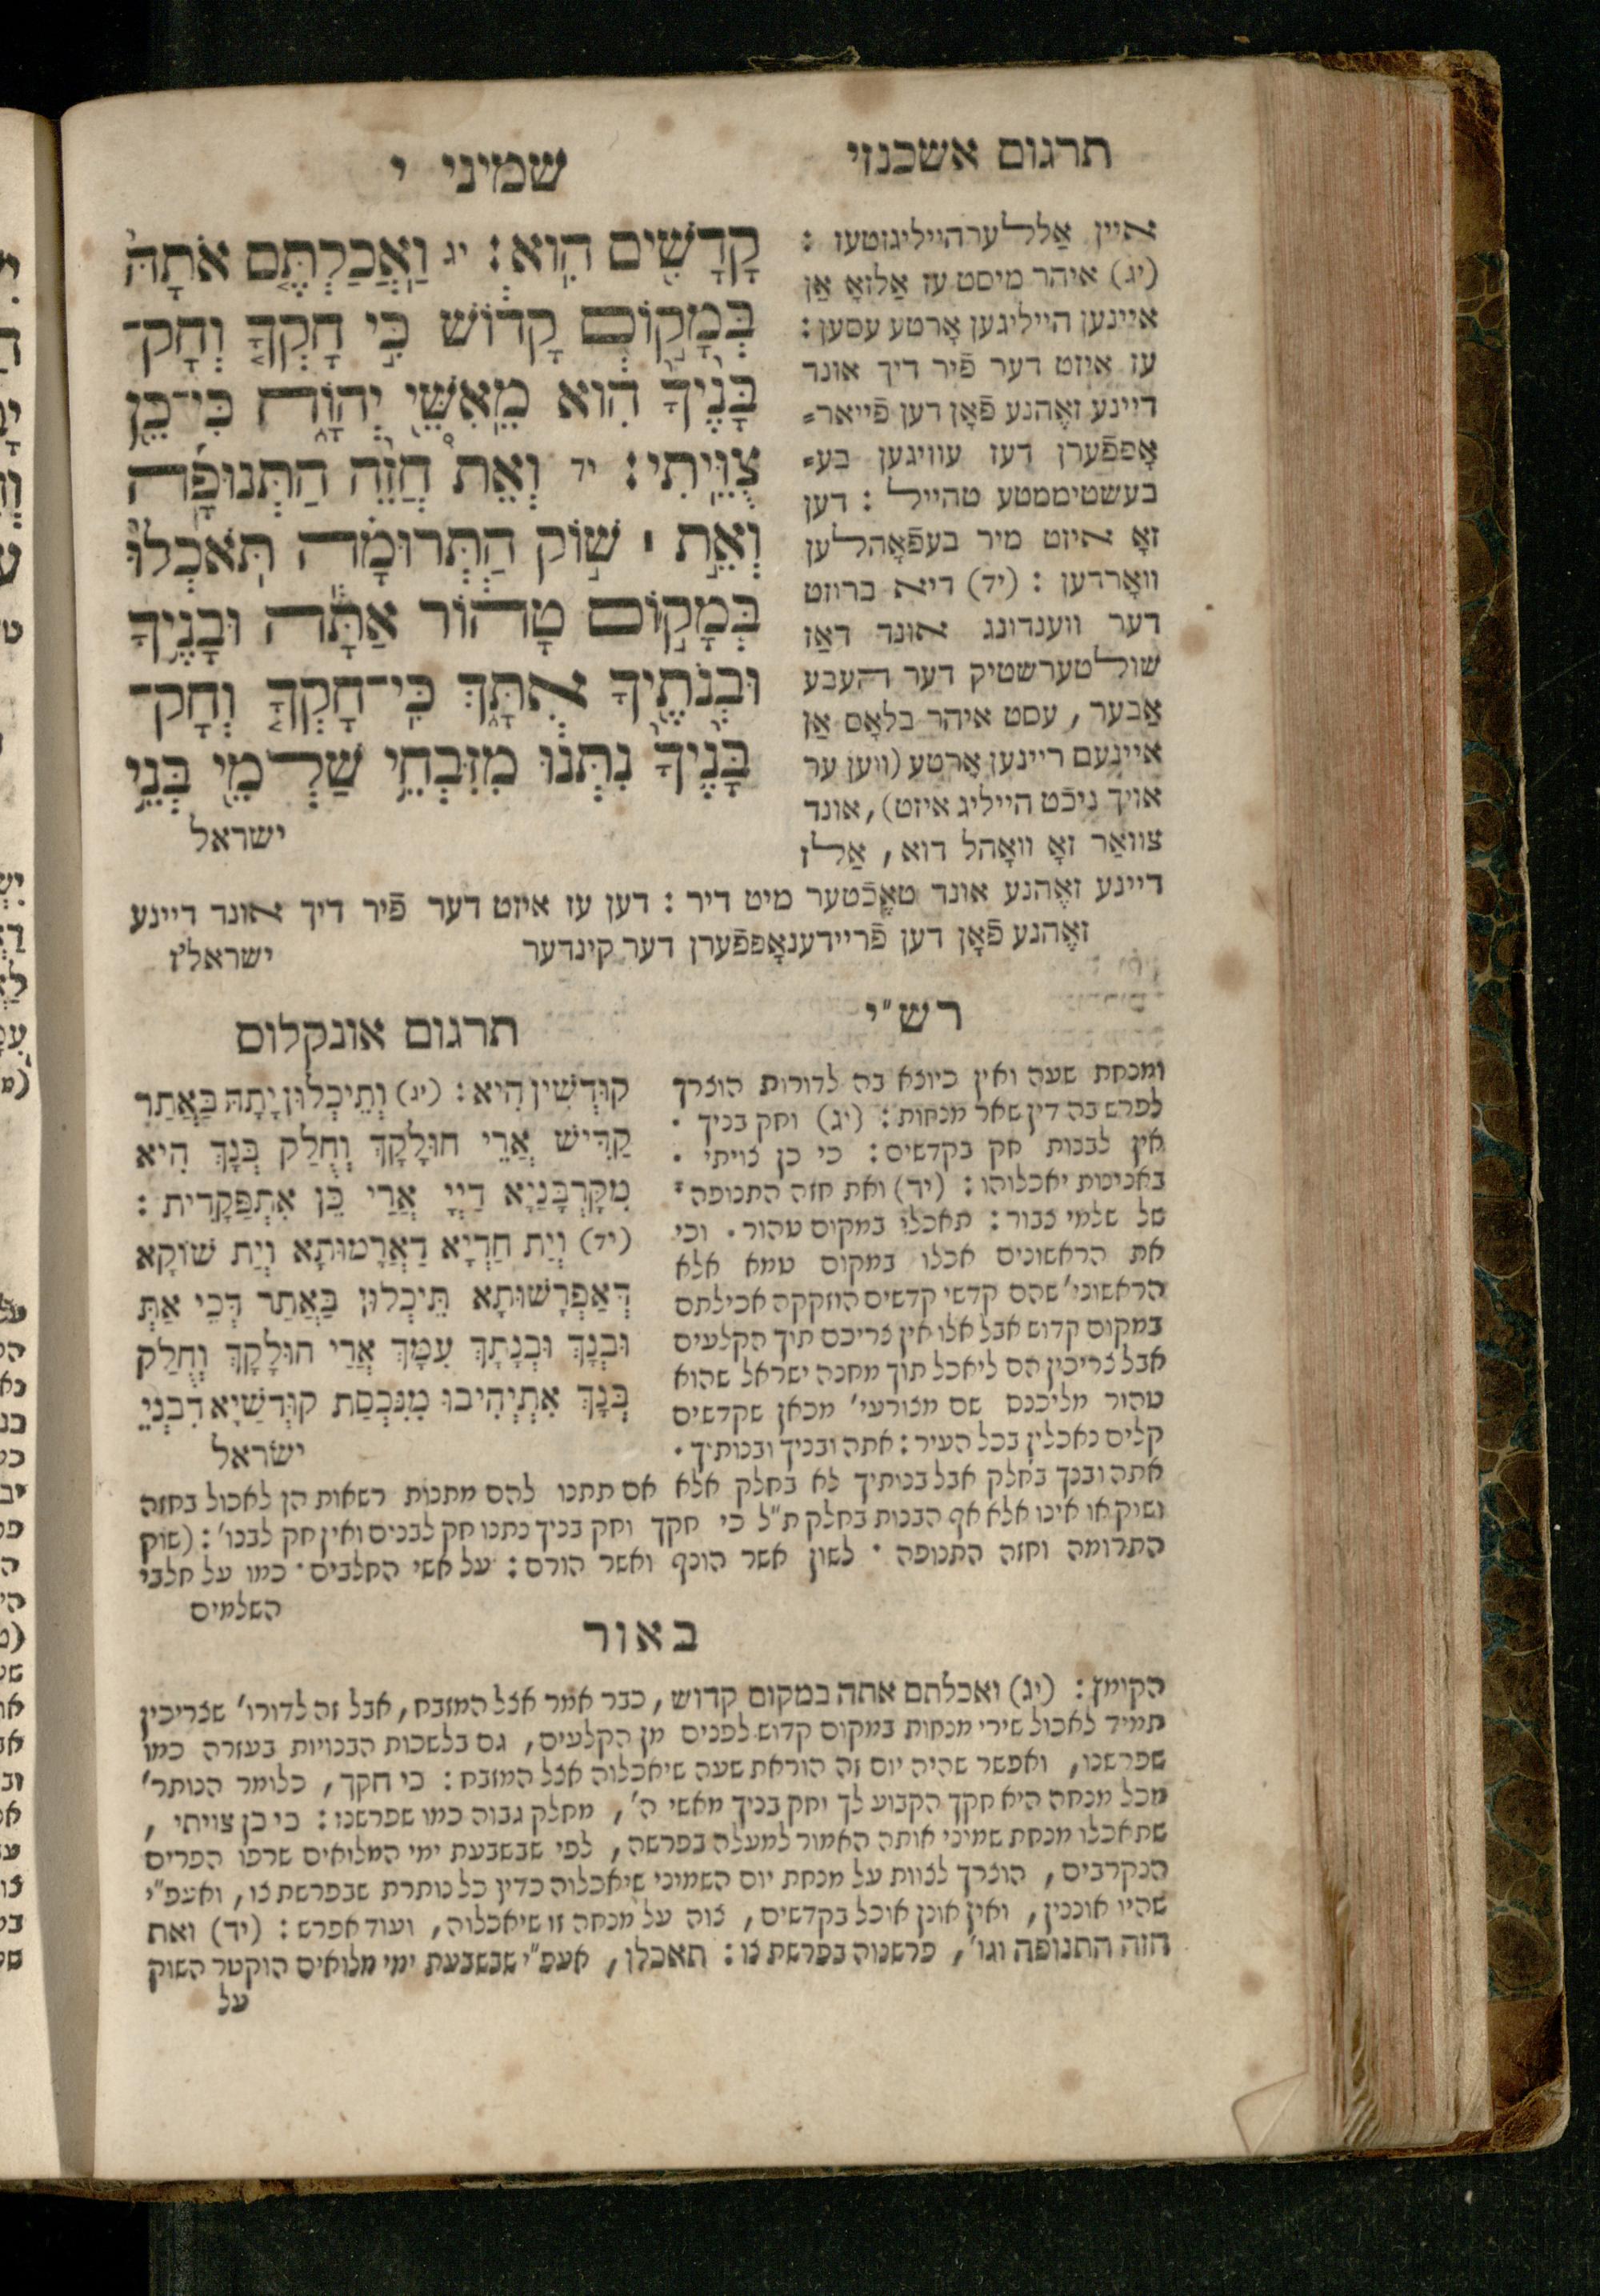 תרגום אשכנזי
שמיני י
קָדָשִׁים הִוא: יג וַאֲכַלְתֶּם אֹתָהּ
בְּמָקוֹם קָדוֹשׁ כִּי חָקְךָ וְחָק־
בָּנֶיךָ הִוא מֵאִשֵּׁי יְהוָֹה כִּי־כֵן
צֻוֵּיתִי: יד וְאֵת חֲזֵה הַתְּנוּפָה
וְאֵת ׀ שׁוֹק הַתְּרוּמָה תֹּאכְלוּ
בְּמָקוֹם טָהוֹר אַתָּה וּבָנֶיךָ
וּבְנֹתֶיךָ אִתָּךְ כִּי־חָקְךָ וְחָק־
בָּנֶיךָ נִתְּנוּ מִזִּבְחֵי שַׁלְמֵי בְּנֵי
ישראל
איין אַללערהייליגזטעז :
(יג) איהר מיסט עז אַלזאָ אַן
איינען הייליגען אָרטע עסען :
עז איזט דער פֿיר דיך אונד
דיינע זאֶהנע פֿאָן דען פֿייאר=
אָפפֿערן דעז עוויגען בע=
בעשטיממטע טהייל : דען
זאָ איזט מיר בעפֿאָהלען
וואָרדען : (יד) דיא ברוזט
דער ווענדונג אונד דאַז
שולטערשטיק דער העבע
אַבער, עסט איהר בלאָס אַן
איינעם ריינען אָרטע (ווען ער
אויך ניכֿט הייליג איזט), אונד
צוואַר זאָ וואָהל דוא, אַלז
דיינע זאֶהנע אונד טאֶכֿטער מיט דיר : דען עז איזט דער פֿיר דיך אונד דיינע
זאֶהנע פֿאָן דען פֿריידענאָפפֿערן דער קינדער
ישראל'ז
רש"י
ומנחת שעה ואין כיוצא בה לדורות הוצרך
לפרש בה דין שאר מנחות : (יג) וחק בניך .
אין לבנות חק בקדשים : כי כן צויתי .
באנינות יאכלוהו : (יד) ואת חזה התנופה .
של שלמי צבור : תאכלו במקום טהור . וכי
את הראשונים אכלו במקום טמא אלא
הראשוני' שהם קדשי קדשים הוזקקה אכילתם
במקום קדוש אבל אלו אין צריכם תוך הקלעים
אבל צריכין הם ליאכל תוך מחנה ישראל שהוא
טהור מליכנס שם מצורעי' מכאן שקדשים
קלים נאכלין בכל העיר : אתה ובניך ובנותיך .
אתה ובנך בחלק אבל בנותיך לא בחלק אלא אם תתנו להם מתנות רשאות הן לאכול בחזה
ושוק או אינו אלא אף הבנות בחלק ת"ל כי חקך וחק בניך נתנו חק לבנים ואין חק לבנו' : (שוק
התרומה וחזה התנופה . לשון אשר הונף ואשר הורם : על אשי החלבים . כמו על חלבי
השלמים
תרגום אונקלוס
קוּדְשִׁין הִיא : (יג) וְתֵיכְלוּן יָתָהּ בַּאֲתַר
קַדִּישׁ אֲרֵי חוּלָקָךְ וָחֳלַק בְּנָךְ הִיא
מִקָּרְבָּנַיָא דַיְיָ אֲרֵי כֵּן אִתְפַּקָדִית :
(יד) וְיַת חַדְיָא דַאֲרָמוּתָא וְיַת שׁוֹקָא
דְּאַפְרָשׁוּתָא תֵּיכְלוּן בַּאֲתַר דְּכֵי אַתְּ
וּבְנָךְ וּבְנָתָךְ עִמָּךְ אֲרֵי חוּלָקָךְ וָחֳלַק
בְּנָךְ אִתְיְהִיבוּ מִנִּכְסַת קוּדְשַׁיָא דִבְנֵי
ישראל
באור
הקומץ : (יג) ואכלתם אתה במקום קדוש, כבר אמר אצל המזבח, אבל זה לדורו' שצריכין
תמיד לאכול שירי מנחות במקום קדוש לפנים מן הקלעים, גם בלשכות הבנויות בעזרה כמו
שפרשנו, ואפשר שהיה יום זה הוראת שעה שיאכלוה אצל המזבח : כי חקך, כלומר הנותר'
מכל מנחה היא חקך הקבוע לך וחק בניך מאשי ה', מחלק גבוה כמו שפרשנו : כי כן צויתי,
שתאכלו מנחת שמיני אותה האמור למעלה בפרשה, לפי שבשבעת ימי המלואים שרפו הפרים
הנקרבים, הוצרך לצוות על מנחת יום השמיני שיאכלוה כדין כל נותרת שבפרשת צו, ואעפ"י
שהיו אוננין, ואין אונן אוכל בקדשים, צוה על מנחה זו שיאכלוה, ועוד אפרש : (יד) ואת
חזה התנופה וגו', פרשנוה בפרשת צו : תאכלו, אעפ"י שבשבעת ימי מלואים הוקטר השוק
על